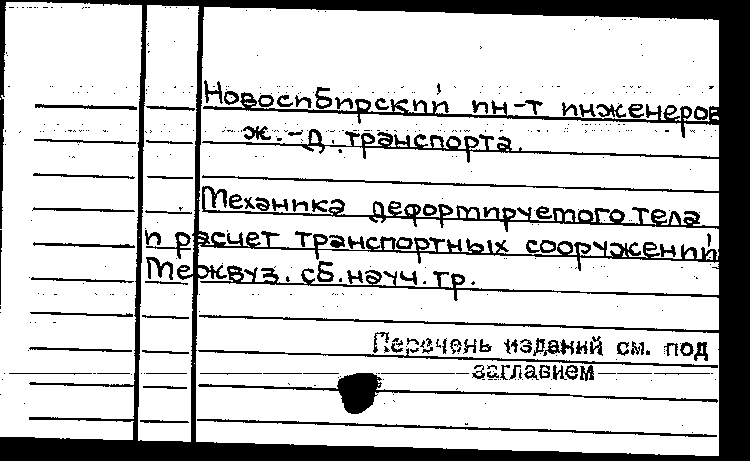 Новосибирский ин-т инженеров
ж.-д. транспорта.
Механика деформируемого тела
и расчет транспортных сооружений
Межвуз. сб. науч. тр.
Перечень изданий см. под
заглавием